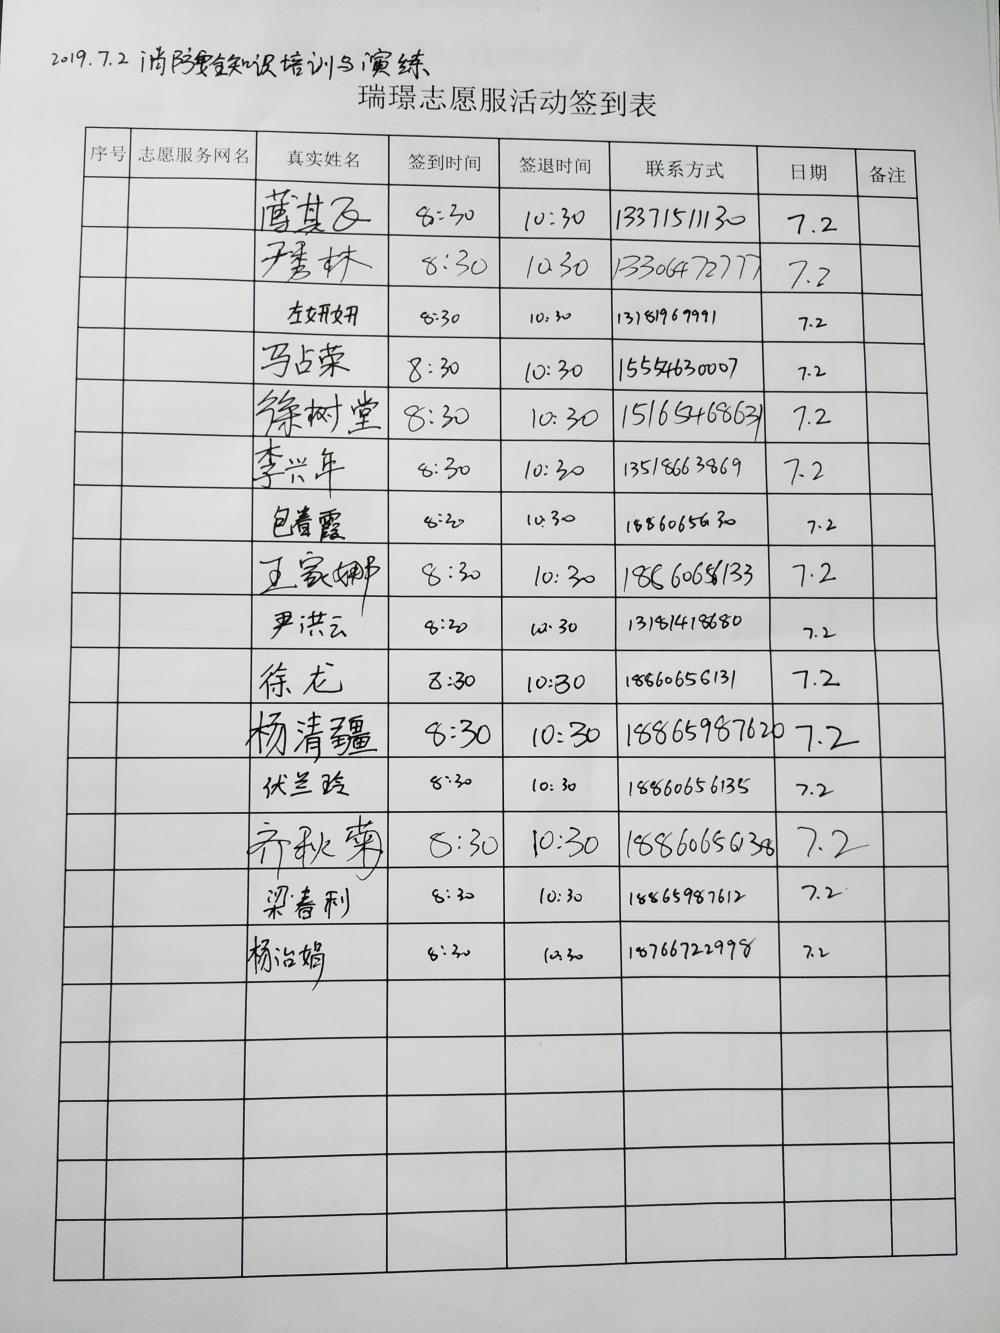 2019.7.2 消防安全知识培训与演练
瑞璟志愿服活动签到表
序号 志愿服务网名 真实姓名 签到时间 签退时间 联系方式 日期 备注
8:30 10:30 13371511130 7.2
秀林 8:30 10:30 13306472777 7.2
左妍妍 8:30 10:30 13181969991 7.2
马占荣 8:30 10:30 15554630007 7.2
徐树堂 8:30 10:30 15165468631 7.2
李兴年 8:30 10:30 13518663869 7.2
包春霞 8:30 10:30 18860656130 7.2
王家娜 8:30 10:30 18860656133 7.2
尹洪云 8:30 10:30 13181418680 7.2
徐龙 8:30 10:30 18860656131 7.2
杨清疆 8:30 10:30 18865987620 7.2
伏兰玲 8:30 10:30 18860656135 7.2
齐秋菊 8:30 10:30 18860656138 7.2
梁春利 8:30 10:30 18865987612 7.2
杨治娟 8:30 10:30 18766722998 7.2